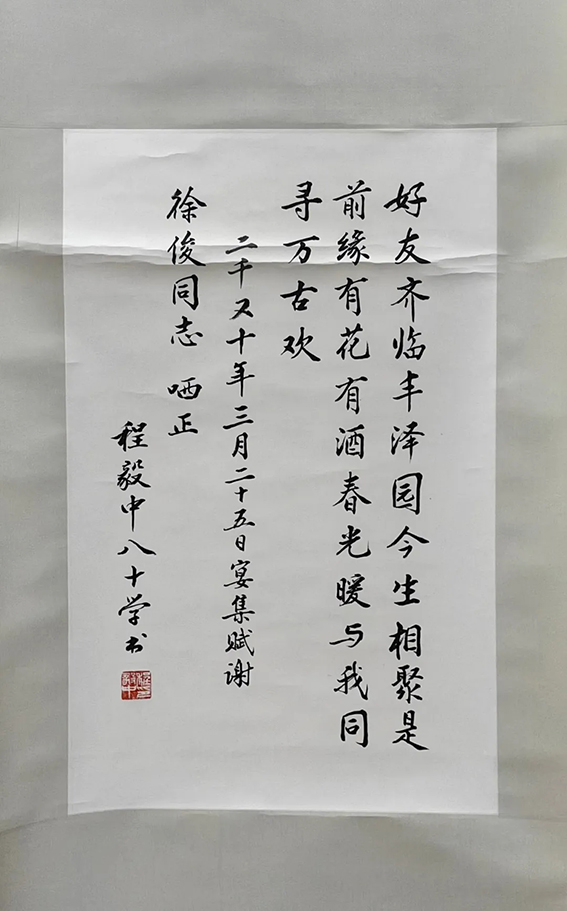 好友齐临丰泽园今生相聚是
前缘有花有酒春光暖与我同
寻万古欢
二千又十年三月二十五日宴集赋谢
徐俊同志 哂正
程毅中八十学书
程毅中